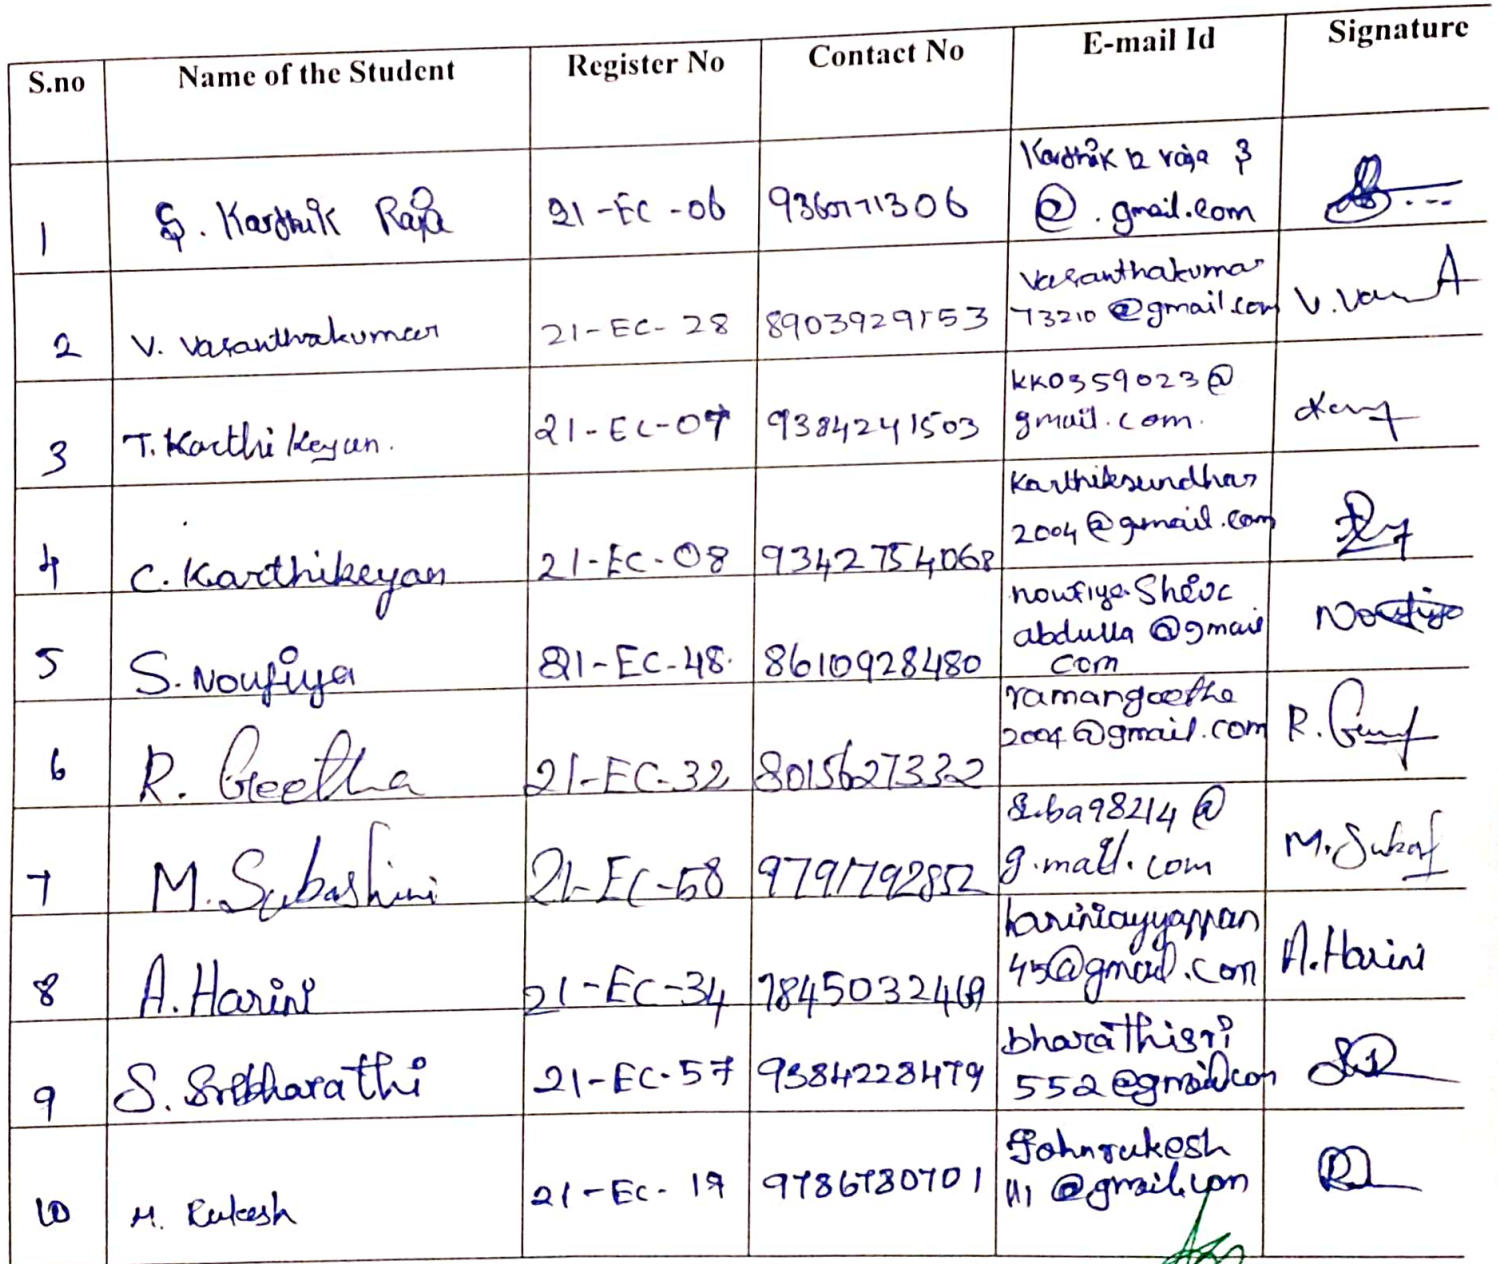 S.no Name of the Student Register No Contact No E-mail Id Signature
1 S. Karthik Raja 21-EC-06
@.gmail.com
2 V. Vasanthakumar 21-EC-28 8903929153 Vasanthakumar
73210@gmail.com
3 T. Karthikeyan. 21-EC-07 9384241503 kk0359023@
gmail.com.
4 C. Karthikeyan 21-EC-08 9342754068 Karthiksundhar
2004@gmail.com
5 S. Noufiya 21-EC-48. 8610928480
abdulla@gmail
com
6 R. Geetha 21-EC-32 8015627332 ramangeetha
2004@gmail.com
7 M. Subashini 21-EC-58 9791792852 Suba98214@
g.mail.com
8 A. Harini 21-EC-34 7845032469 hariniayyappan A. Harini
45@gmail.com
9 S. Sribharathi 21-EC-57 9384228479 bharathisri
552@gmail.com
10 M. Rukesh 21-EC-19 9786780701 Johnrukesh
111@gmail.com